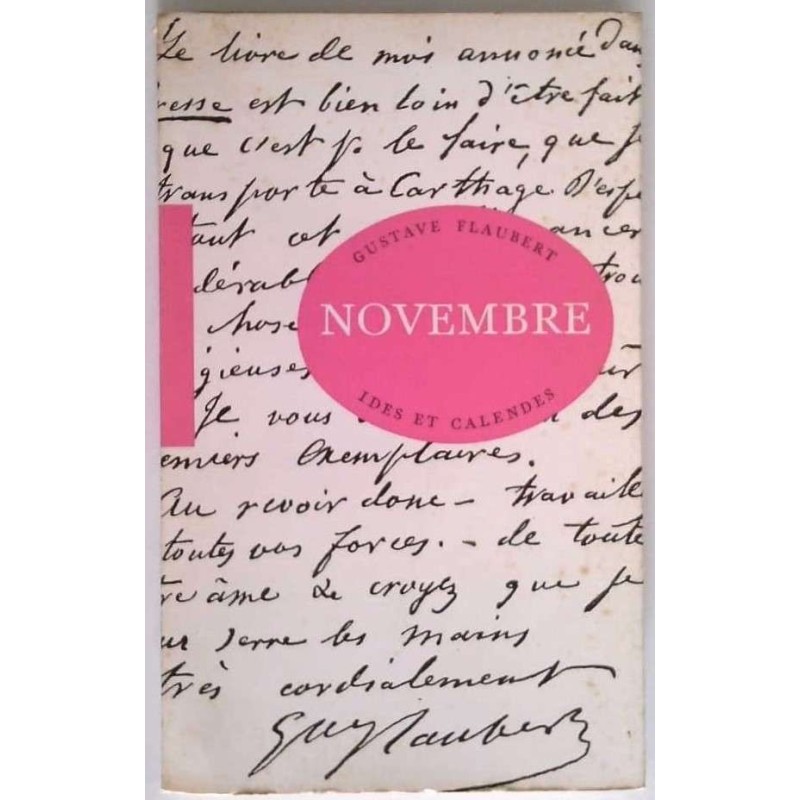 Le livre de moi annoncé dan
resse est bien loin d'être fait
que c'est p. le faire, que je
transporte à Carthage. D'espe
tant cet ancer
GUSTAVE FLAUBERT
dérabl trou
NOVEMBRE
chose
gieuses ur
IDES ET CALENDES
Je vous des
emiers exemplaires.
Au revoir donc – travaille
toutes vos forces. – de toute
re âme & croyez que je
us serre les mains
très cordialement
Gve Flaubert